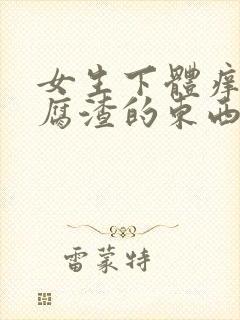 女生下體痒
腐渣的東西
雷蒙特